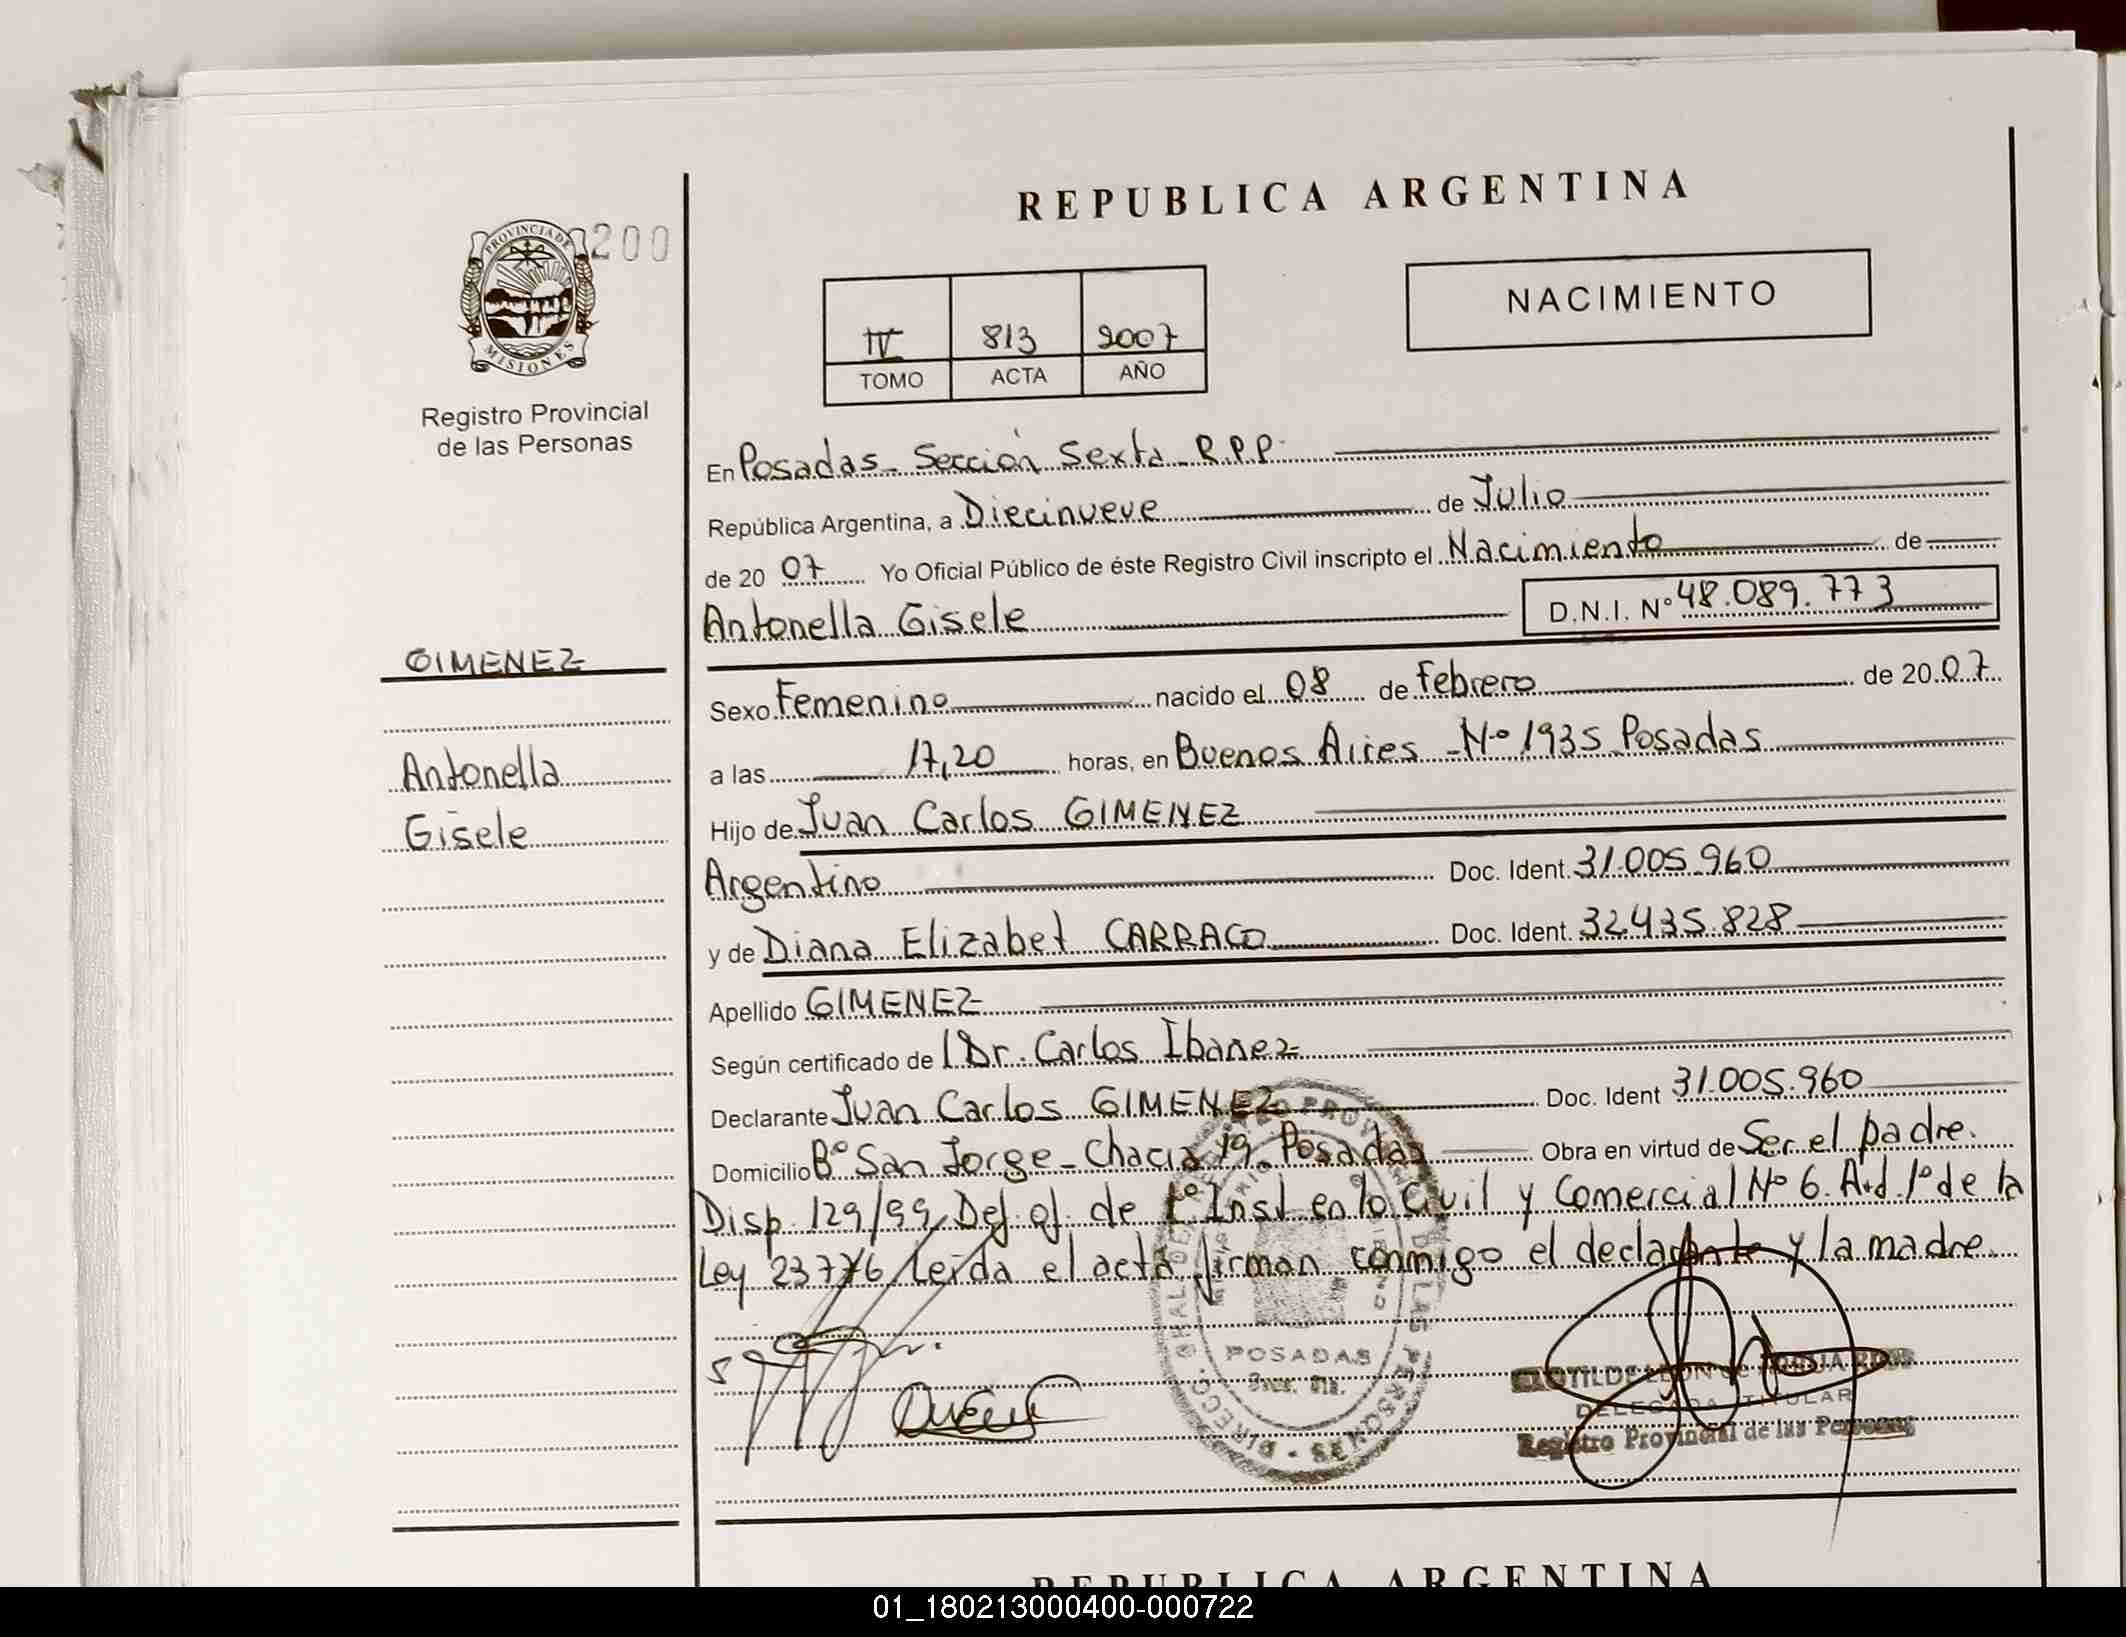 REPUBLICA ARGENTINA
PROVINCIA DE
MISIONES
200
Registro Provincial
de las Personas
IV 813 2007
TOMO ACTA AÑO
NACIMIENTO
En Posadas - Sección Sexta - R.P.P.
República Argentina, a Diecinueve de Julio
de 20 07 Yo Oficial Público de éste Registro Civil inscripto el Nacimiento de
Antonella Gisele D.N.I. Nº 48.089.773
GIMENEZ
Antonella
Gisele
Sexo Femenino nacido el 08 de Febrero de 20 07
a las 17,20 horas, en Buenos Aires - Nº 1935 Posadas
Hijo de Juan Carlos GIMENEZ
Argentino Doc. Ident. 31.005.960
y de Diana Elizabet CARRACO Doc. Ident. 32.435.828
Apellido GIMENEZ
Según certificado de Dr. Carlos Ibanez
Declarante Juan Carlos GIMENEZ Doc. Ident 31.005.960
Domicilio Bº San Jorge - Chacra 19 Posadas Obra en virtud de Ser el padre.
Disp. 129/99 Def. of. de 1º Inst. en lo Civil y Comercial Nº 6. Art. 1º de la
Ley 23776 Leída el acta firman conmigo el declarante y la madre.
POSADAS
DELEGADA TITULAR
Registro Provincial de las Personas
REPUBLICA ARGENTINA
01_180213000400-000722